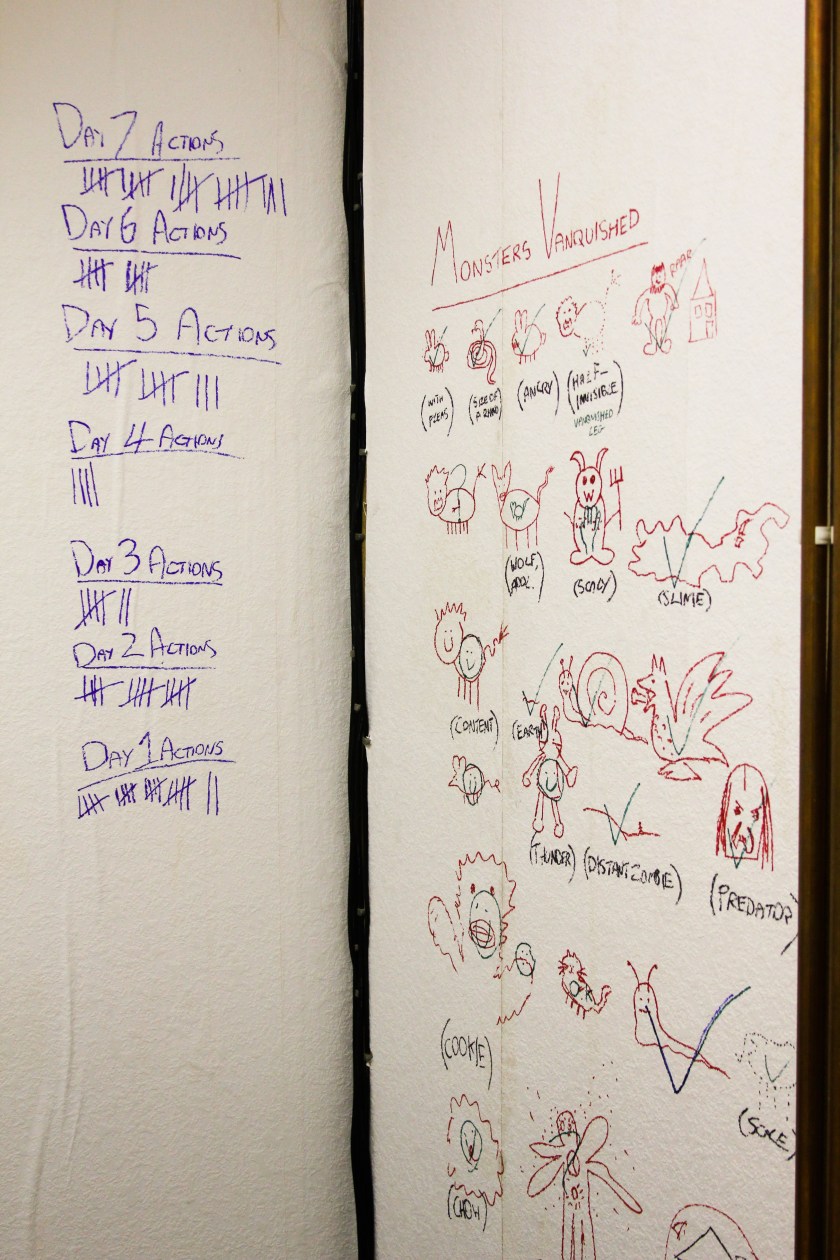 DAY 7 ACTIONS
DAY 6 ACTIONS
DAY 5 ACTIONS
DAY 4 ACTIONS
DAY 3 ACTIONS
DAY 2 ACTIONS
DAY 1 ACTIONS
MONSTERS VANQUISHED
ROAR
(WITH
FLEAS)
(SIZE OF
A RHINO)
(ANGRY)
(HALF-
INVISIBLE)
VANQUISHED
LEG
(WOLF,
(SCALY)
(SLIME)
(CONTENT)
(EARTH)
(THUNDER)
(DISTANT ZOMBIE)
(PREDATOR)
(COOKIE)